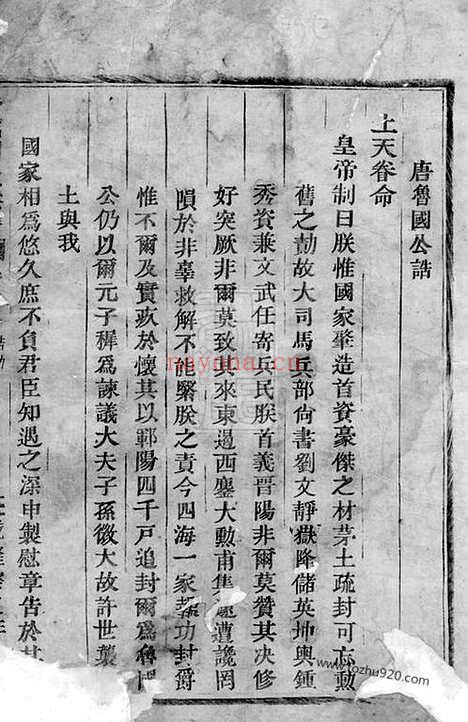 唐魯國公誥
上天眷命
皇帝制曰朕惟國家肇造首資豪傑之材茅土疏封可忘勲
舊之勣故大司馬兵部尚書劉文靜嶽降儲英坤輿鍾
秀資兼文武任寄兵民朕首義晉陽非爾莫贊其决修
好突厥非爾莫致其來東遏西鏖大勲甫集遽遭讒罔
隕於非辜救解不時緊朕之責今四海一家報功封爵
惟不爾及實疚於懷其以鄿陽四千戸追封爾爲魯國
公仍以爾元子穉爲諫議大夫子孫徵大故許世襲
土與我
國家相爲悠久庶不負君臣知遇之深申製慰章告於
nayona.cn
www.tozhu920.com